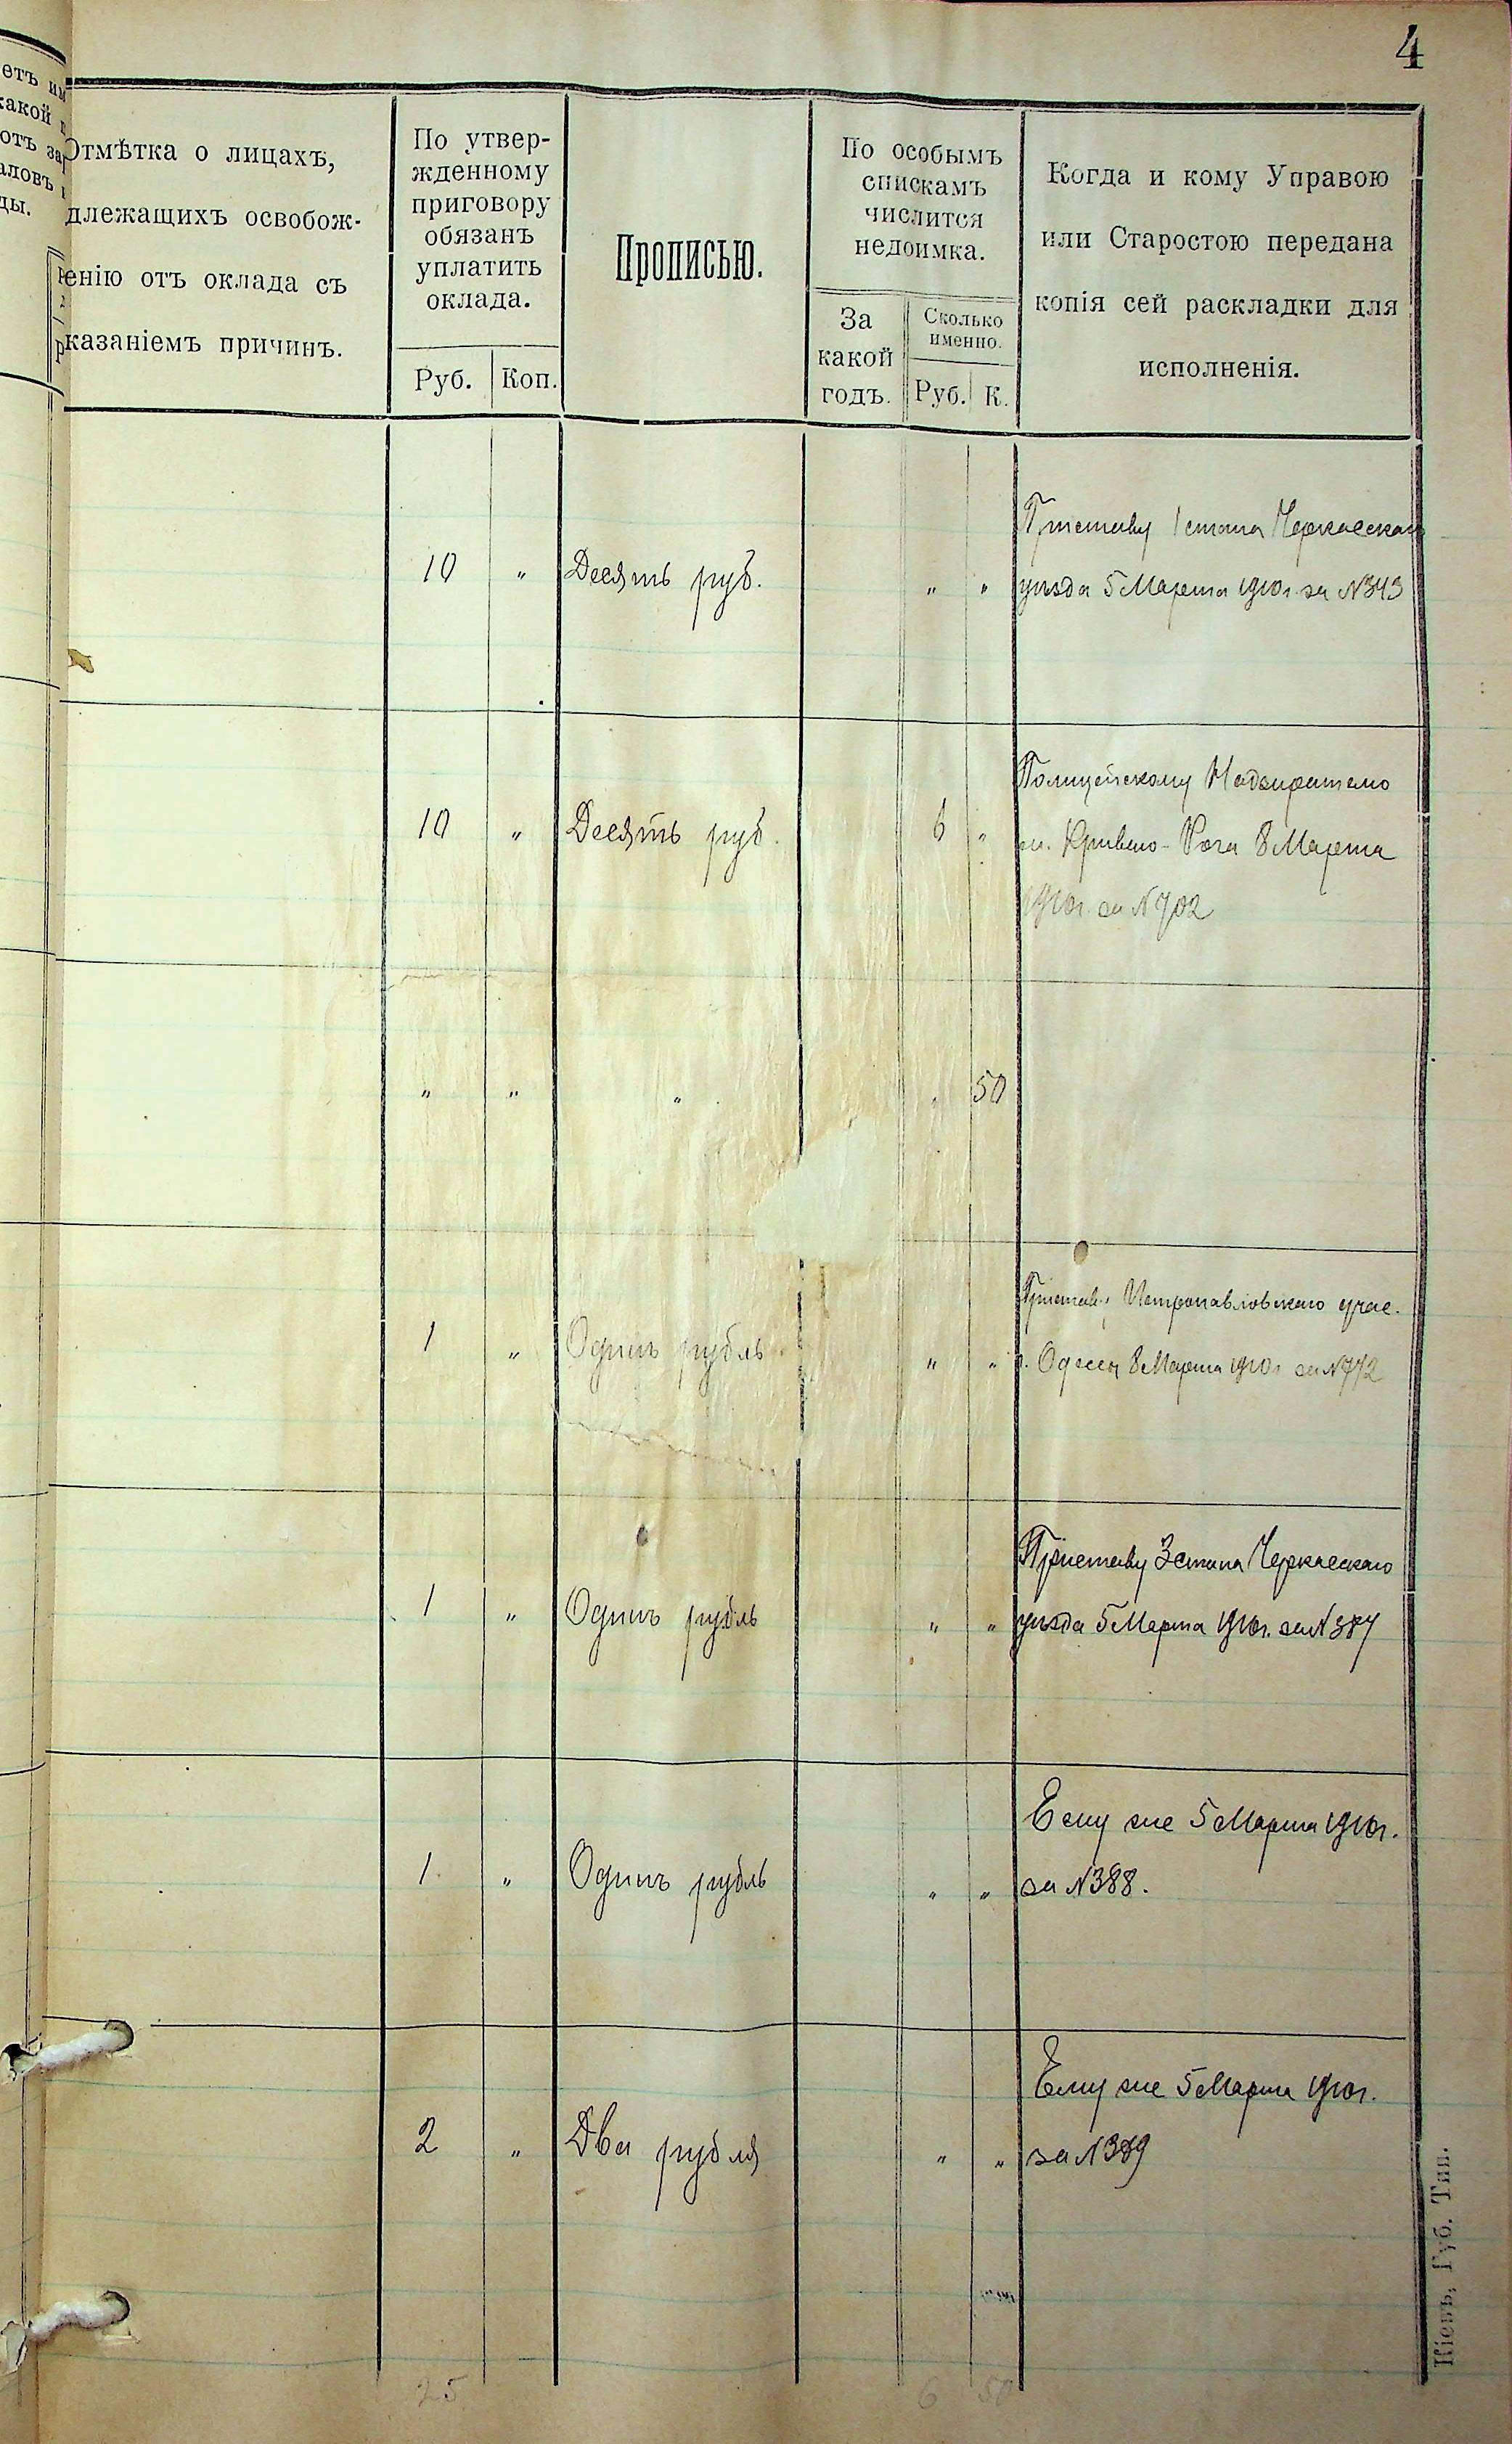 4
етъ им
какой п
отъ зар
аловъ и
ды.
Отмѣтка о лицахъ,
длежащихъ освобож-
енію отъ оклада съ
казаніемъ причинъ.
По утвер-
жденному
приговору
обязанъ
уплатить
оклада.
Руб. Коп.
Прописью.
По особымъ
спискамъ
числится
недоимка.
За
какой
годъ.
Сколько
именно.
Руб. К.
Когда и кому Управою
или Старостою передана
копія сей раскладки для
исполненія.
Приставу 1 стана Черкасскаго
10 " Десять руб. " " уѣзда 5 Марта 1910 г. за N 343
Полицейскому Надзирателю
10 " Десять руб. 6 " м. Кривого-Рога 8 Марта
1910 г. за N 702
" " " " 50
Приставу Петропавловскаго учас.
1 " Одинъ рубль " " г. Одессы 8 Марта 1910 г за N 772
Приставу 3 стана Черкасскаго
1 " Одинъ рубль " " уѣзда 5 Марта 1910 г. за N 387
Ему же 5 Марта 1910 г.
1 " Одинъ рубль " " за N 388.
Ему же 5 Марта 1910 г.
2 " Два рубля " " за N 389
25 6 50
Кіевъ, Губ. Тип.